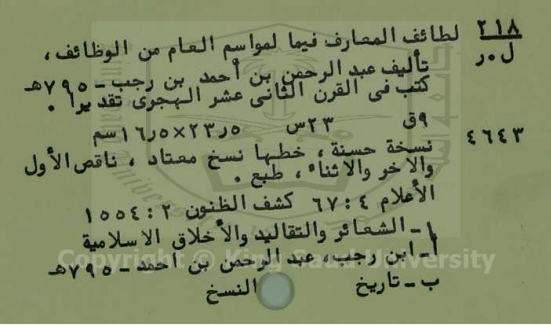 ٢١٨ لطائف المعارف فيما لمواسم العام من الوظائف،
ل٠ر تأليف عبد الرحمن بن أحمد بن رجب - ٧٩٥هـ
كتب فى القرن الثانى عشر الهجرى تقديرا .
٩ق ٢٣س ٢٣٫٥×١٦٫٥سم
٤٦٤٣ نسخة حسنة ، خطها نسخ معتاد ، ناقص الأول
والآخر والاثناء ، طبع .
الأعلام ٤:٦٧ كشف الظنون ٢: ١٥٥٤
١- الشعائر والتقاليد والأخلاق الاسلامية
أ- ابن رجب، عبد الرحمن بن احمد - ٧٩٥هـ
ب - تاريخ النسخ
Copyright © King Saud University